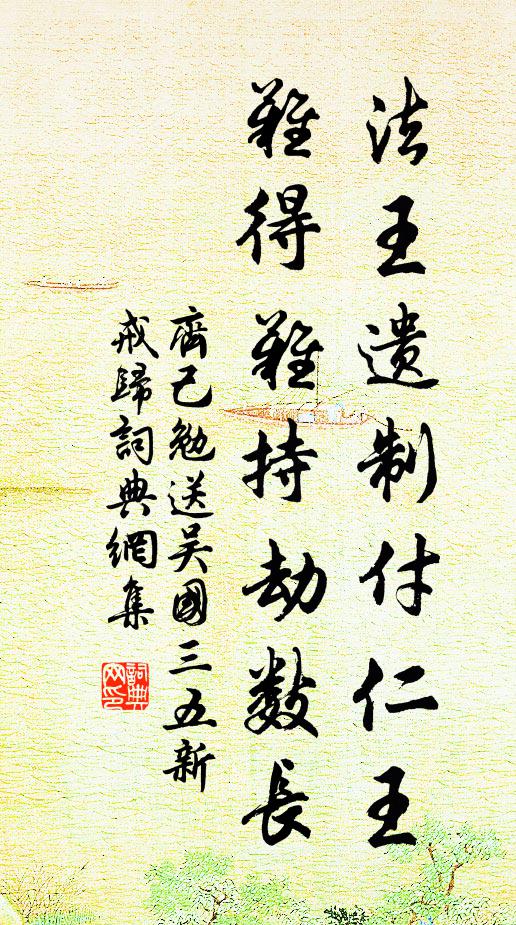 法王遺制付仁王
難得難持劫數長
齊己勉送吴國三五新
戒歸詞典網集
詞典
网印